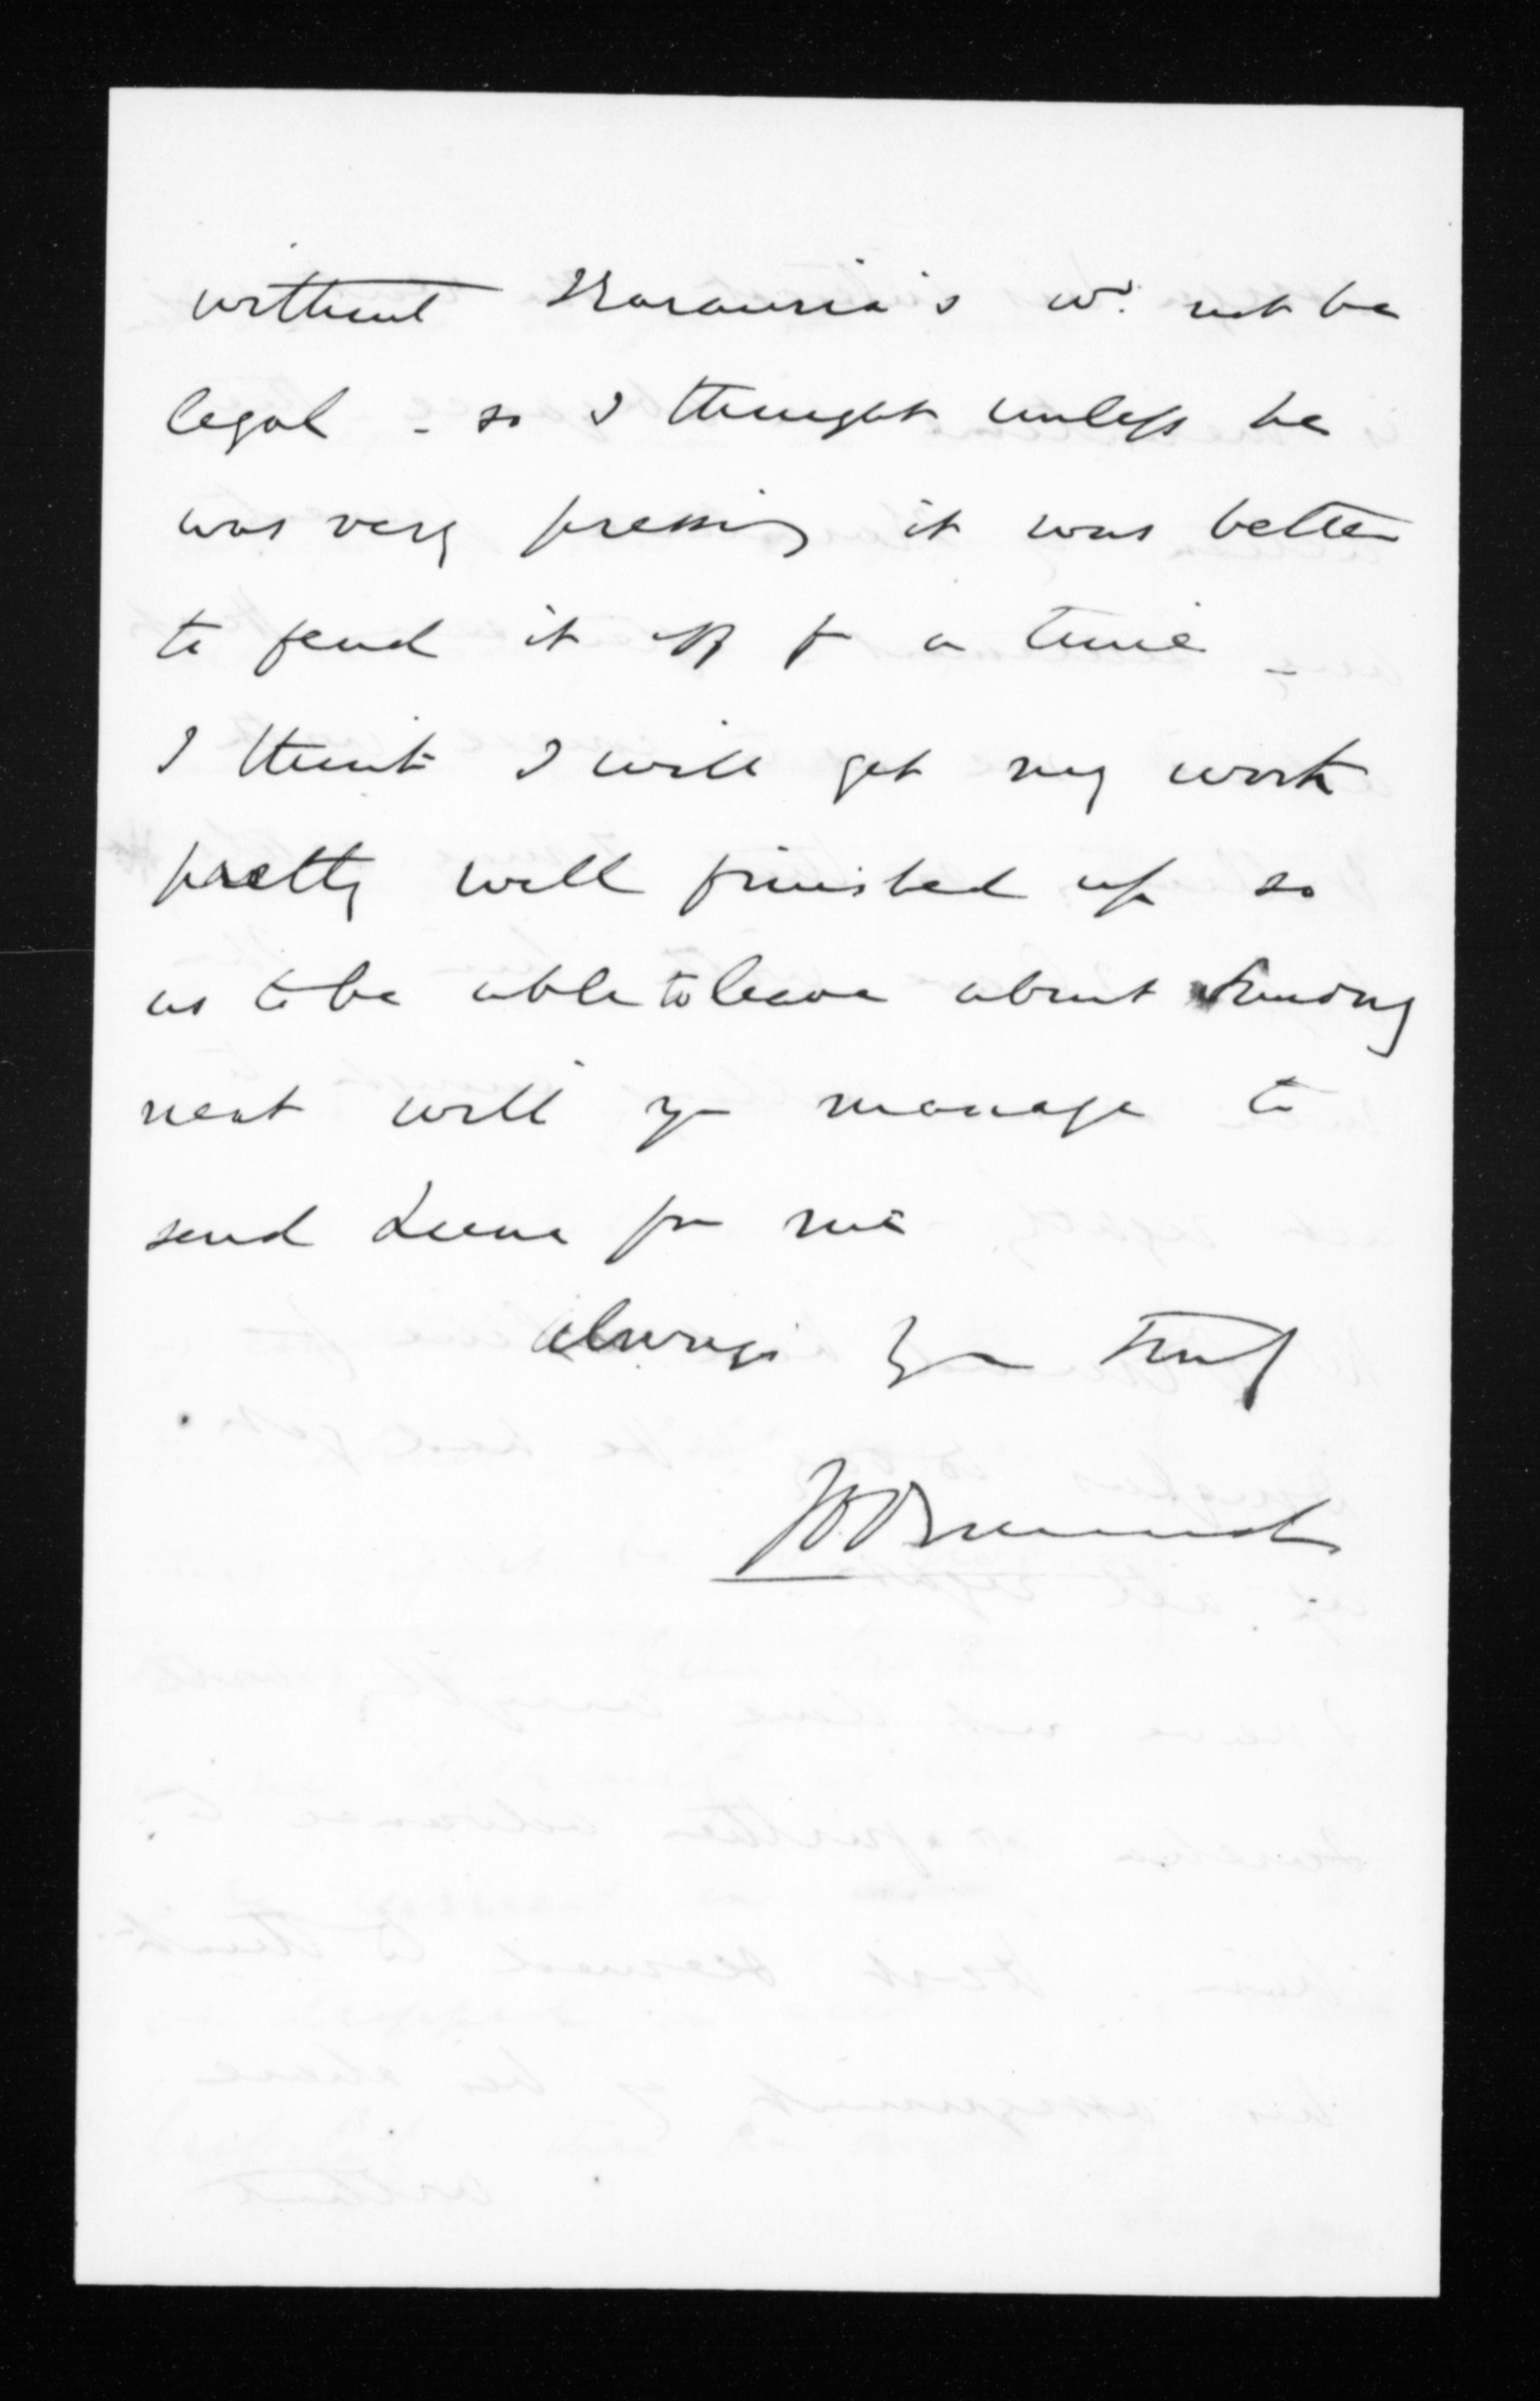 without Karauria's wd. not be
legal - so I thought unless he
was very pressing it was better
to fend it off for a time -
I think I will get my work
pretty well finished up so
as to be able to leave about Sunday
next will you manage to
send Luna for me
always yrs truly